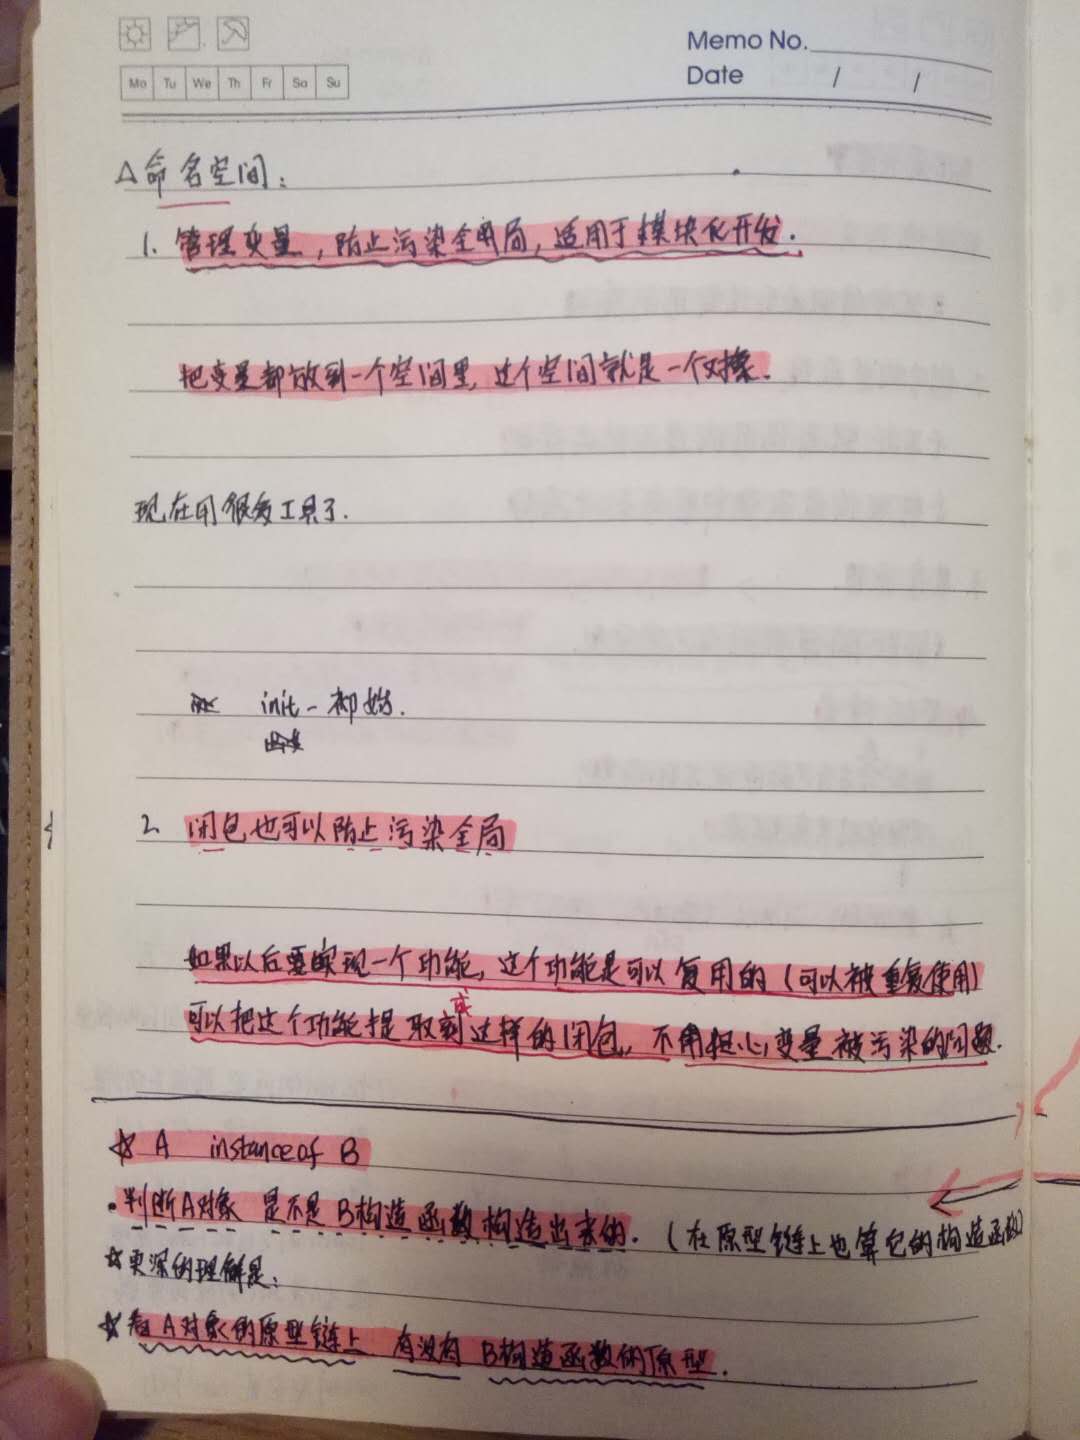 Memo No.
Date / /
Mo Tu We Th Fr Sa Su
△命名空间：
1. 管理变量，防止污染全局，适用于模块化开发.
把变量都放到一个空间里，这个空间就是一个对象.
现在用很多工具了.
init - 初始.
2. 闭包也可以防止污染全局
如果以后要实现一个功能，这个功能是可以复用的(可以被重复使用)
可以把这个功能提取到或这样的闭包，不用担心变量被污染的问题.
☆ A instanceof B
·判断A对象 是不是B构造函数构造出来的. (在原型链上也算它的构造函数)
☆更深的理解是：
☆看A对象的原型链上 有没有 B构造函数的原型.